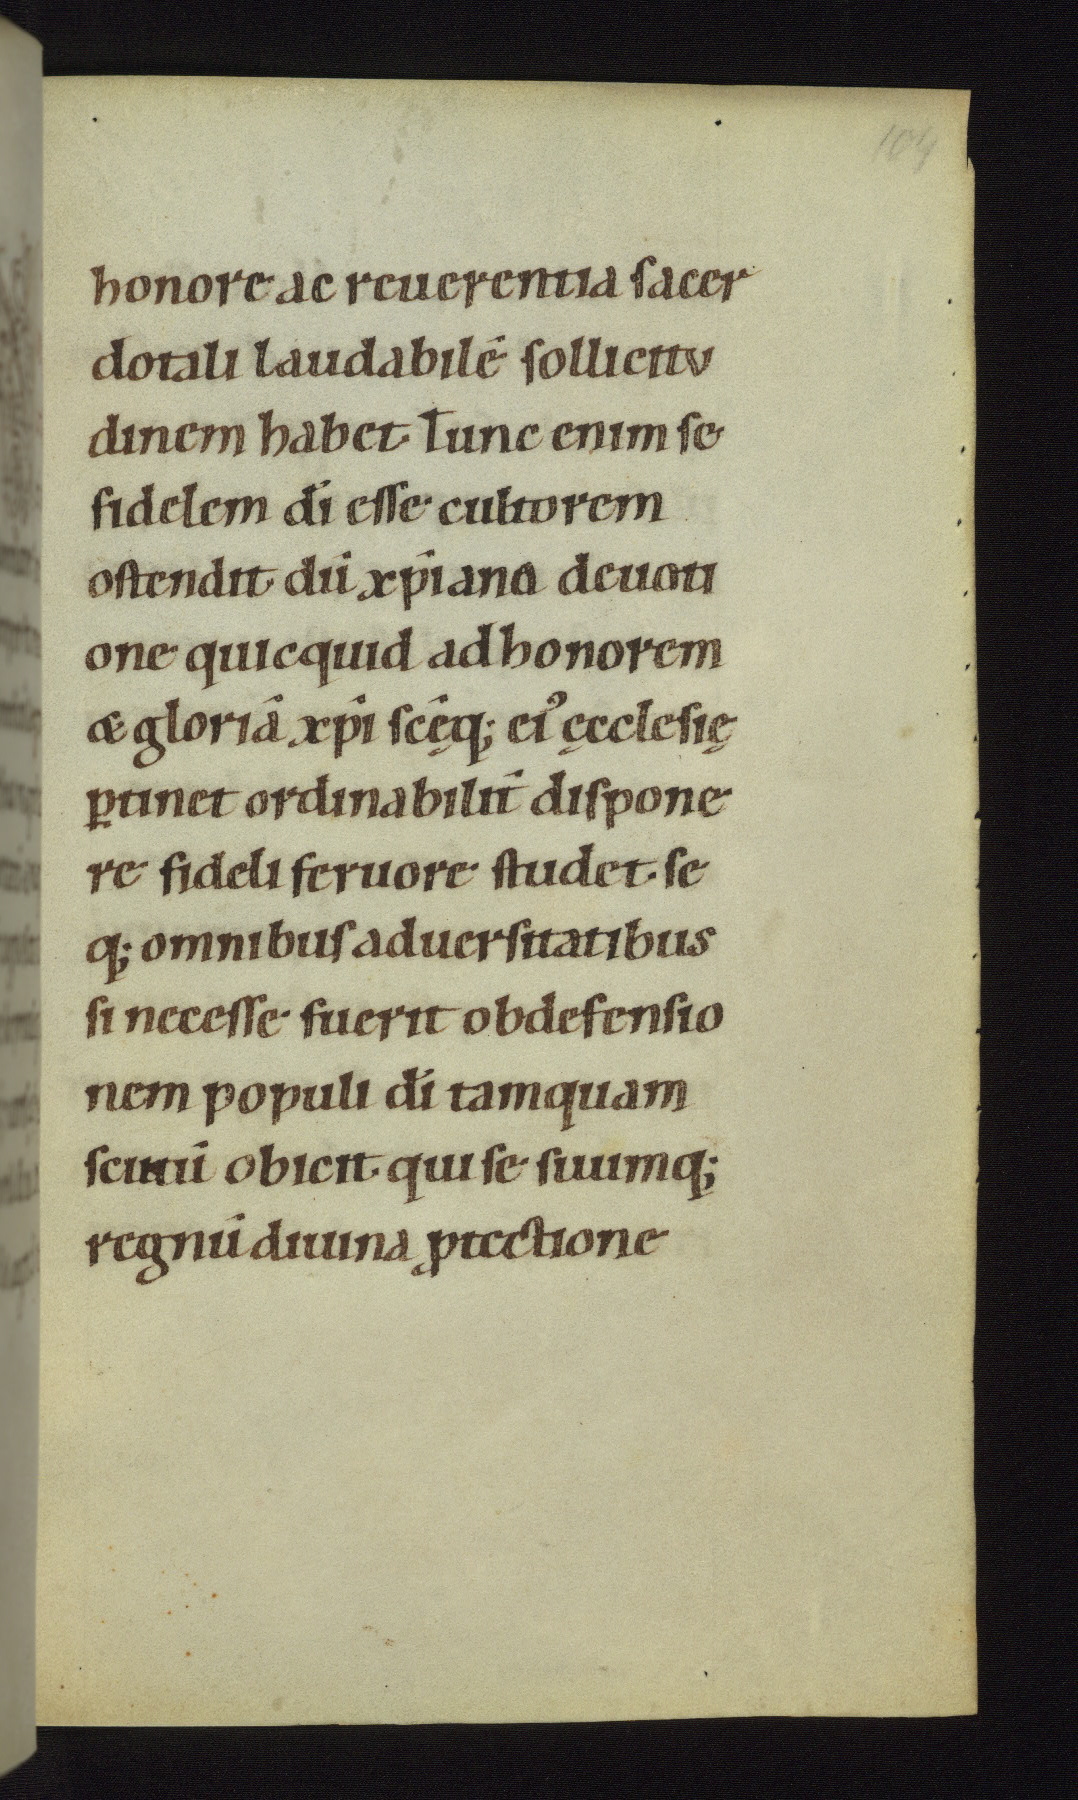 104
honore ac reuerentia sacer
dotali laudabilē sollicitv
dinem habet. Tunc enim se
fidelem dī esse cultorem
ostendit dū xp̄iana deuoti
one quicquid ad honorem
& gloriā xp̄i scēq; ei᾽ ęcclesię
ꝑtinet ordinabilit̄ dispone
re fideli feruore studet. se
q; omnibus aduersitatibus
si necesse fuerit ob defensio
nem populi dī tamquam
scutū obicit. qui se suumq;
regnū diuina ꝓtectione